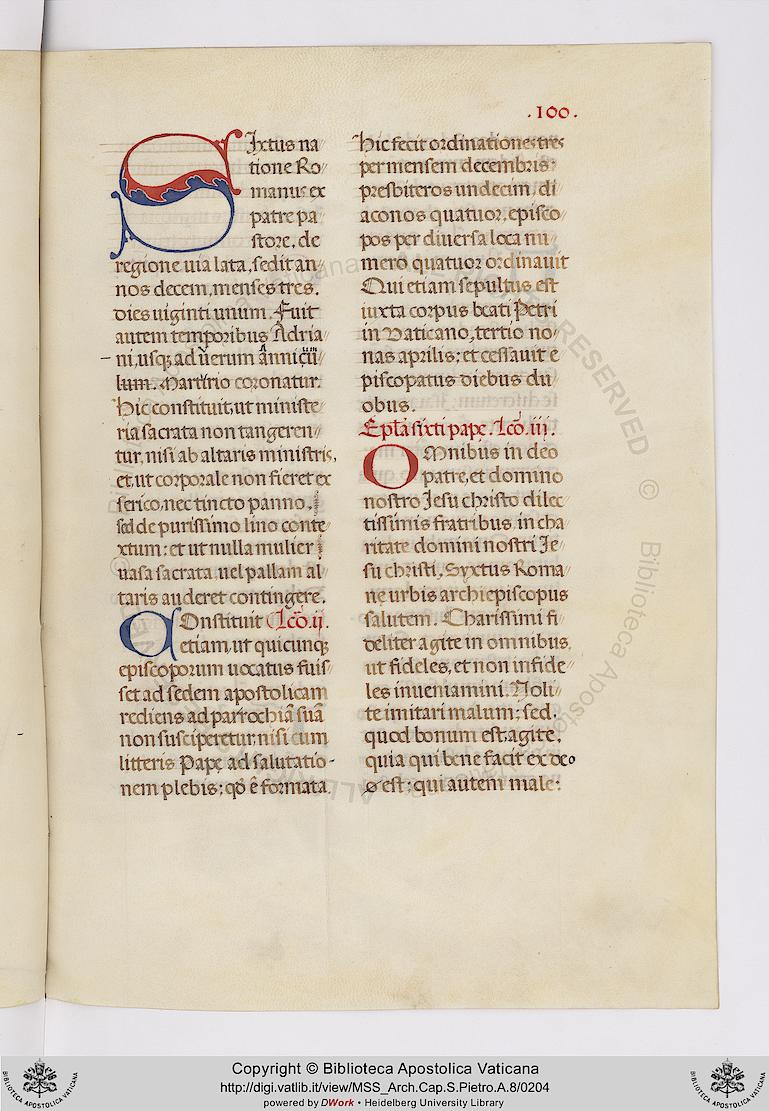 .100.
SIxtus na
tione Ro
manus ex
patre pa
store, de
regione uia lata, sedit an
nos decem, menses tres.
dies uiginti unum. Fuit
autem temporibus Adria
ni, usq; ad uerum
Martirio coronatur.
Hic constituit, ut ministe
ria sacrata non tangeren
tur, nisi ab altaris ministris,
et, ut corporale non fieret ex
serico, nec tincto panno,
sed de purissimo lino conte
xtum: et ut nulla mulier
uasa sacrata uel pallam al
taris auderet contingere.
COnstituit Lcō. ij.
etiam, ut quicunq;
episcoporum uocatus fuis
set ad sedem apostolicam
rediens ad parrochiā suā
non susciperetur, nisi cum
litteris Papę ad salutatio-
nem plebis; qđ ē formata.
Hic fecit ordinationes tres
per mensem decembris:
presbiteros undecim, di
aconos quatuor, episco
pos per diuersa loca nu
mero quatuor ordinauit
Qui etiam sepultus est
iuxta corpus beati Petri
in Vaticano, tertio no
nas aprilis: et cessauit e
piscopatus diebus du
obus.
Epła sixti papę. Lcō. iij.
OMnibus in deo
patre, et domino
nostro Jesu christo dilec
tissimis fratribus, in cha
ritate domini nostri Je
su christi, Syxtus Roma
nę urbis archiepiscopus
salutem. Charissimi fi
deliter agite in omnibus,
ut fideles, et non infide
les inueniamini. Noli
te imitari malum; sed,
quod bonum est, agite,
quia qui bene facit ex deo
est; qui autem male:
Copyright © Biblioteca Apostolica Vaticana
http://digi.vatlib.it/view/MSS_Arch.Cap.S.Pietro.A.8/0204
powered by DWork • Heidelberg University Library
BIBLIOTECA APOSTOLICA VATICANA
BIBLIOTECA APOSTOLICA VATICANA